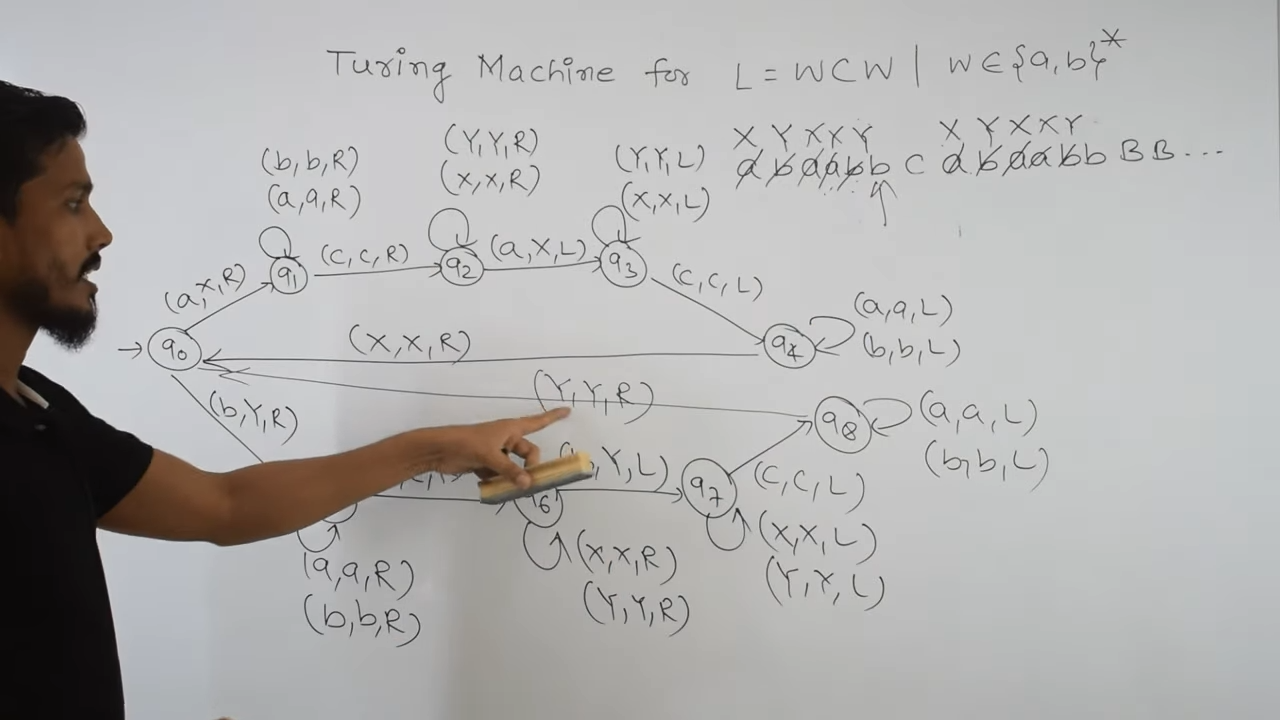 Turing Machine for L = WCW | W∈{a,b}*
X Y X X Y X Y X X Y
a b a a b b C a b a a b b B B ...
(b, b, R)
(a, a, R)
(Y, Y, R)
(X, X, R)
(Y, Y, L)
(X, X, L)
(a, X, R)
q1
(C, C, R)
q2
(a, X, L)
q3
(C, C, L)
q0
(X, X, R)
q4
(a, a, L)
(b, b, L)
(b, Y, R)
(Y, Y, R)
q8
(a, a, L)
(b, b, L)
Y, L)
q7
(C, C, L)
(a, a, R)
(b, b, R)
(X, X, R)
(Y, Y, R)
(X, X, L)
(Y, X, L)